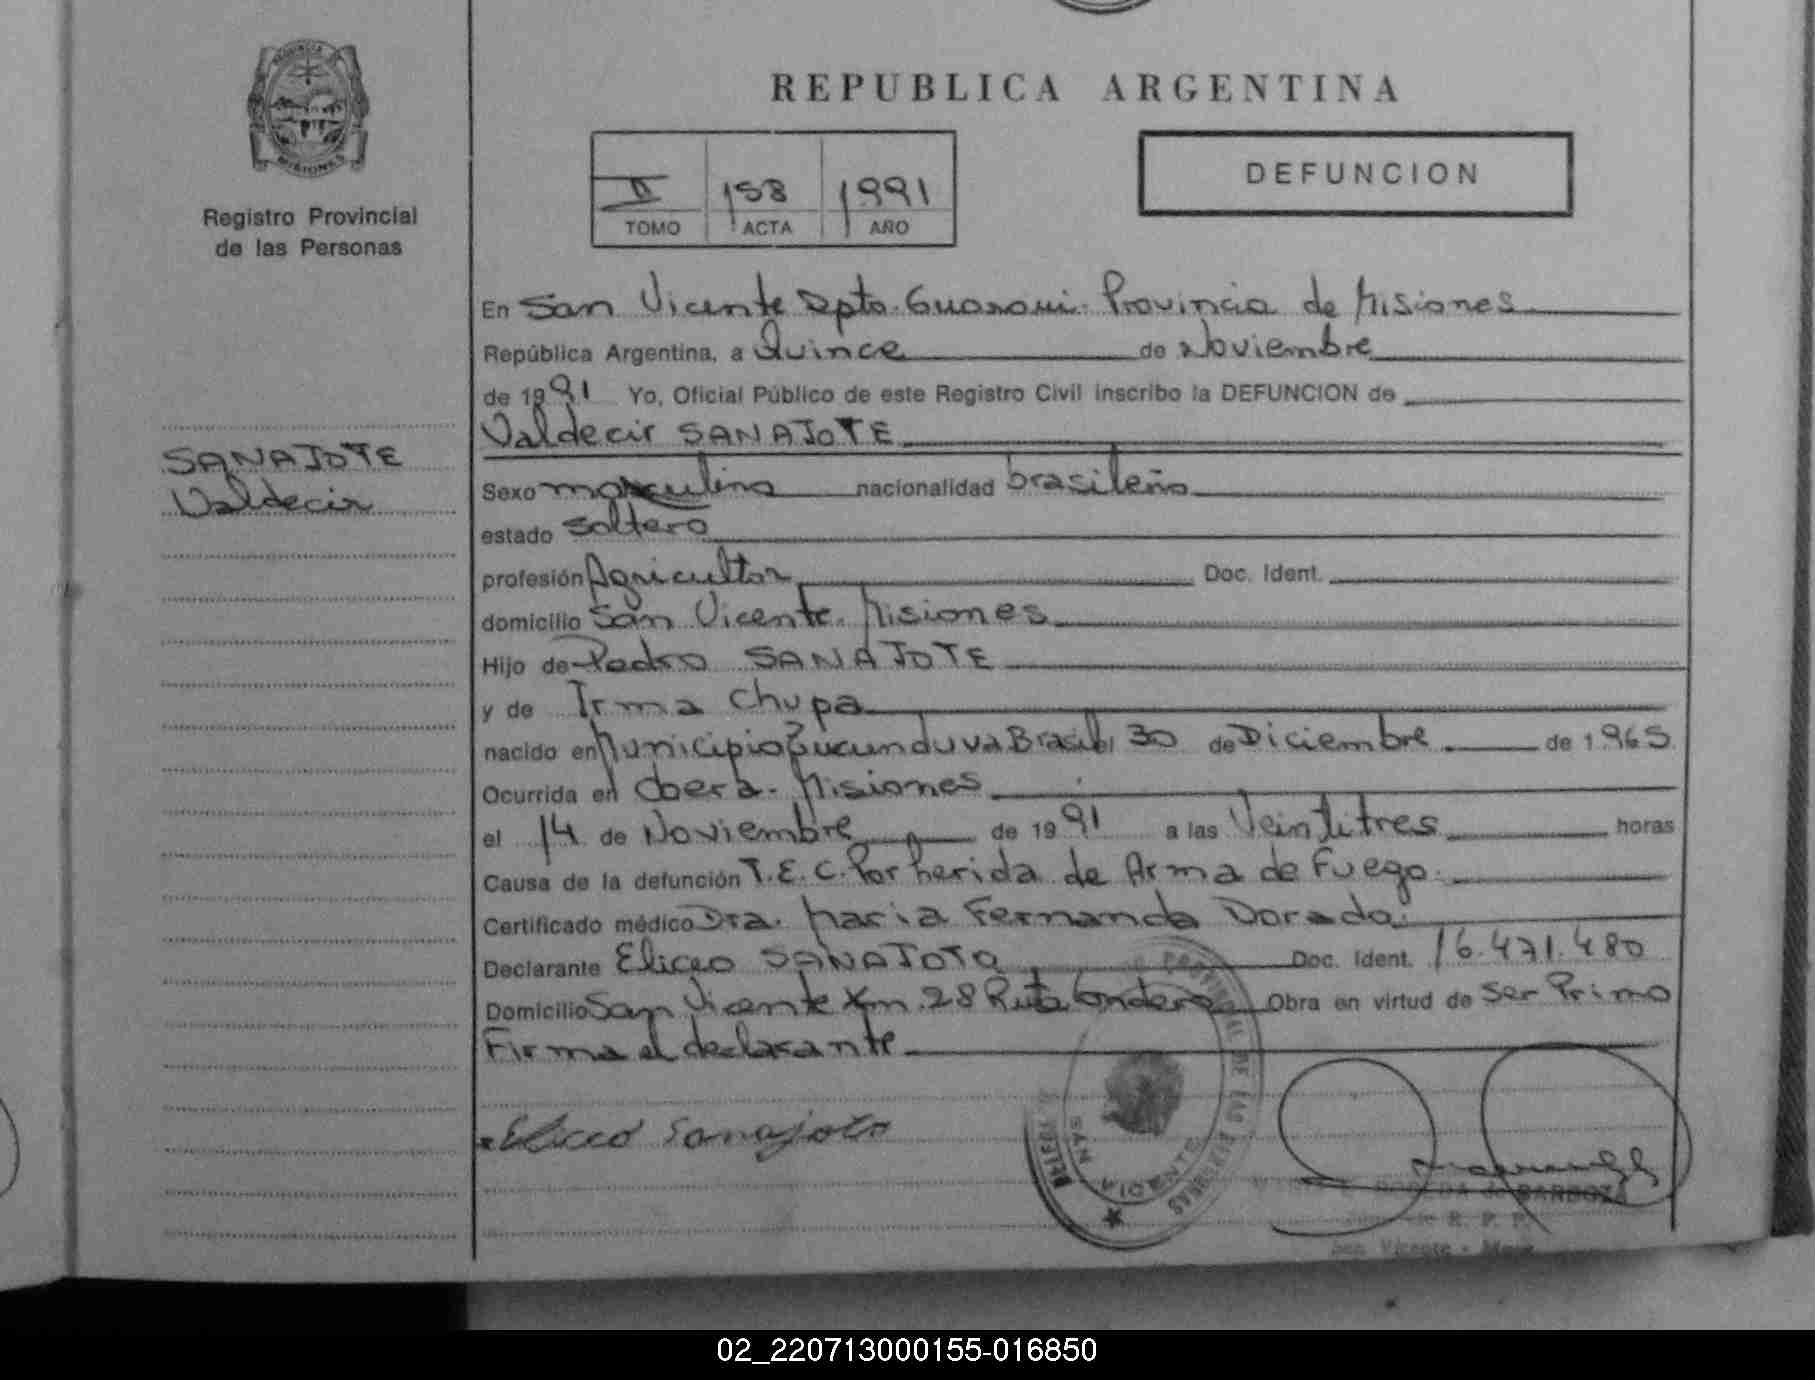 PROVINCIA
MISIONES
Registro Provincial
de las Personas
SANAJOTE
Valdecir
REPUBLICA ARGENTINA
II 158 1991
TOMO ACTA AÑO
DEFUNCION
En San Vicente Dpto. Guarani. Provincia de Misiones
República Argentina, a Quince de Noviembre
de 1991 Yo, Oficial Público de este Registro Civil inscribo la DEFUNCION de
Valdecir SANAJOTE
Sexo masculino nacionalidad brasileño
estado soltero
profesión Agricultor Doc. Ident.
domicilio San Vicente. Misiones
Hijo de Pedro SANAJOTE
y de Irma Chupa
nacido en Municipio Tucunduva Brasil el 30 de Diciembre de 1.965
Ocurrida en Obera. Misiones
el 14 de Noviembre de 1991 a las Veintitres horas
Causa de la defunción T.E.C. Por herida de Arma de Fuego.
Certificado médico Dra. Maria Fernanda Dorado.
Declarante Eliceo SANAJOTO Doc. Ident. 16.471.480
Domicilio San Vicente Km. 28 Ruta Obra en virtud de ser Primo
Firma el declarante
Eliceo Sanajoto
PROVINCIAL DE LAS PERSONAS
SAN VICENTE
de BARBOZA
R. P. P.
San Vicente - Mnes.
02_220713000155-016850